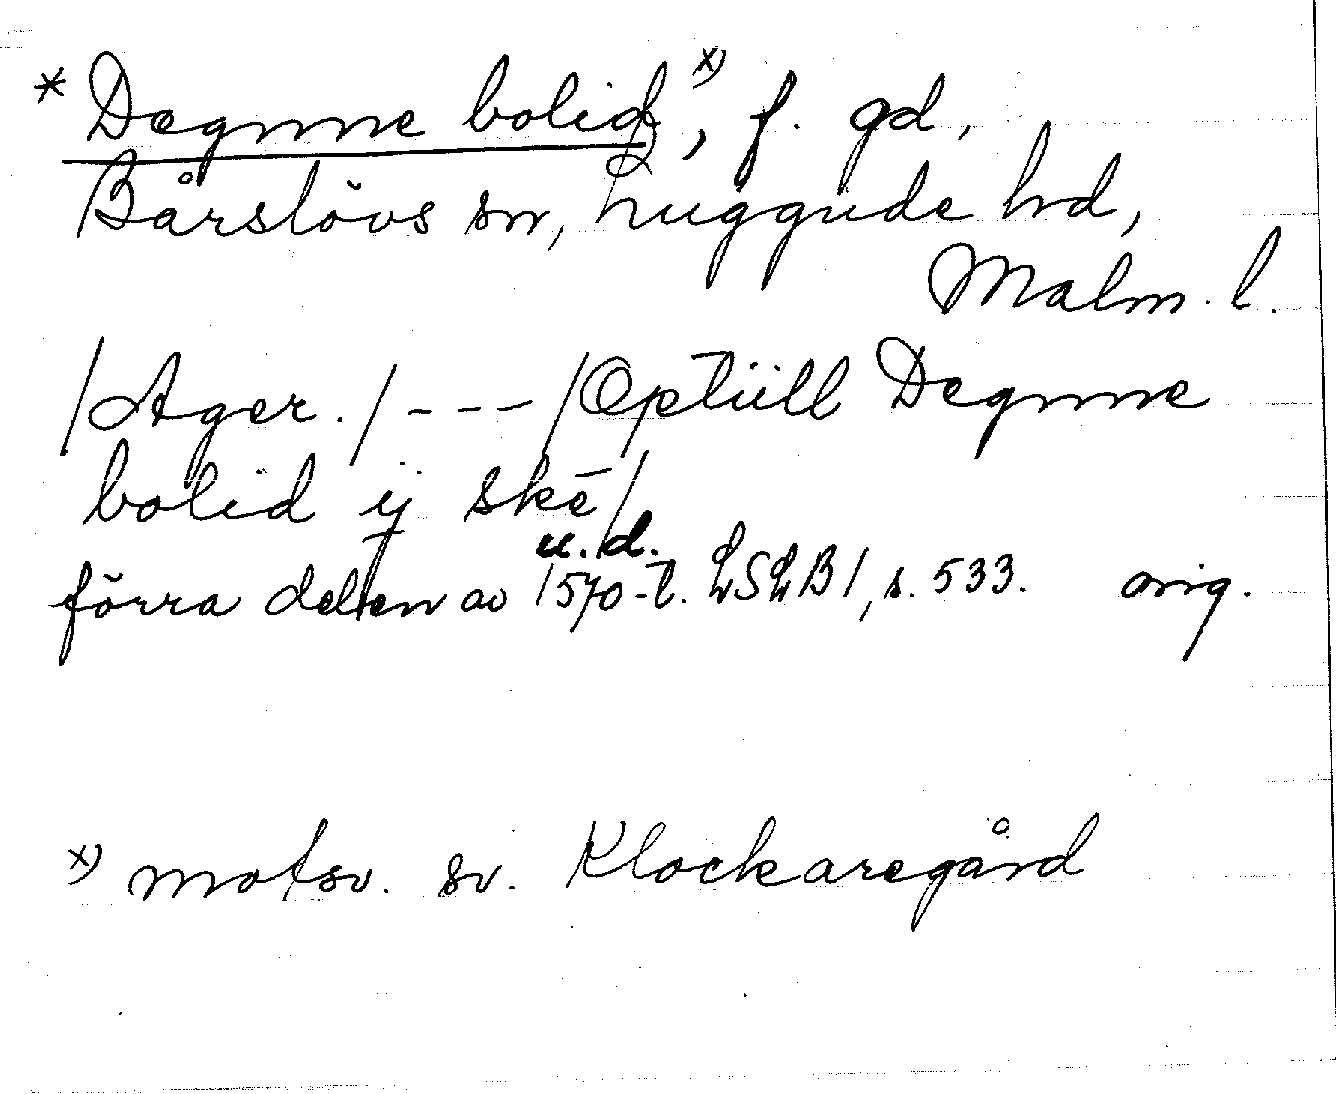 * Degnne bolid x), f. gd,
Bårslövs sn, Luggude hd,
Malm. l.
/Ager./ - - - /Optiill Degnne
bolid ij ske/
u. d.
förra delen av 1570-t. LSLB1, s. 533. orig.
x) motsv. sv. Klockaregård